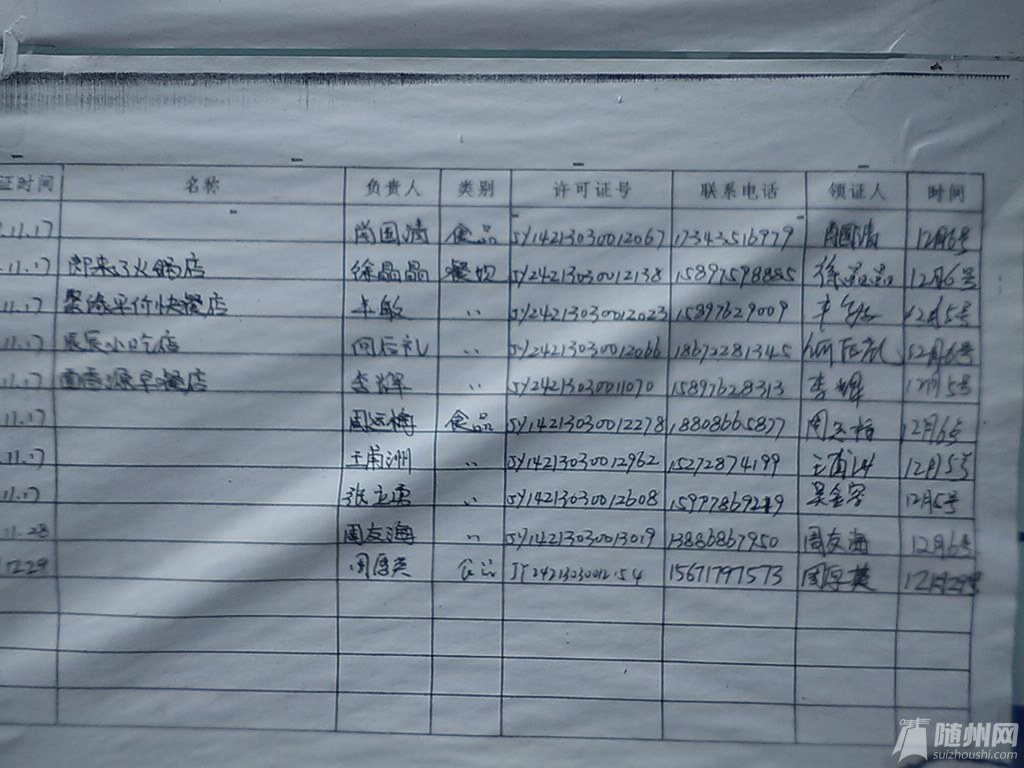 证时间 名称 负责人 类别 许可证号 联系电话 领证人 时间
.11.17 尚国清 食品 JY14213030012067 17343516979 尚国清 12月6号
.11.17 郎来了火锅店 徐晶晶 餐饮 JY24213030012138 15897598885 徐晶晶 12月6号
11.17 平价快餐店 丰敏 〃 JY24213030012023 15897629009 丰敏 12月5号
11.17 辰辰小吃店 何后礼 〃 JY24213030012066 18672281345 何后礼 12月6号
11.17 源早餐店 李辉 〃 JY24213030011070 15897628313 李辉 12月5号
11.17 周运梅 食品 JY14213030012278 18808665877 周运梅 12月6号
11.17 王甫洲 〃 JY14213030012962 15272874199 王甫洲 12月5号
11.17 张立勇 〃 JY14213030012608 15977869249 12月5号
11.28 周友海 〃 JY14213030013019 13886867950 周友海 12月6号
12.29 周厚英 食品 15671797573 周厚英 12月29号
随州网
suizhoushi.com